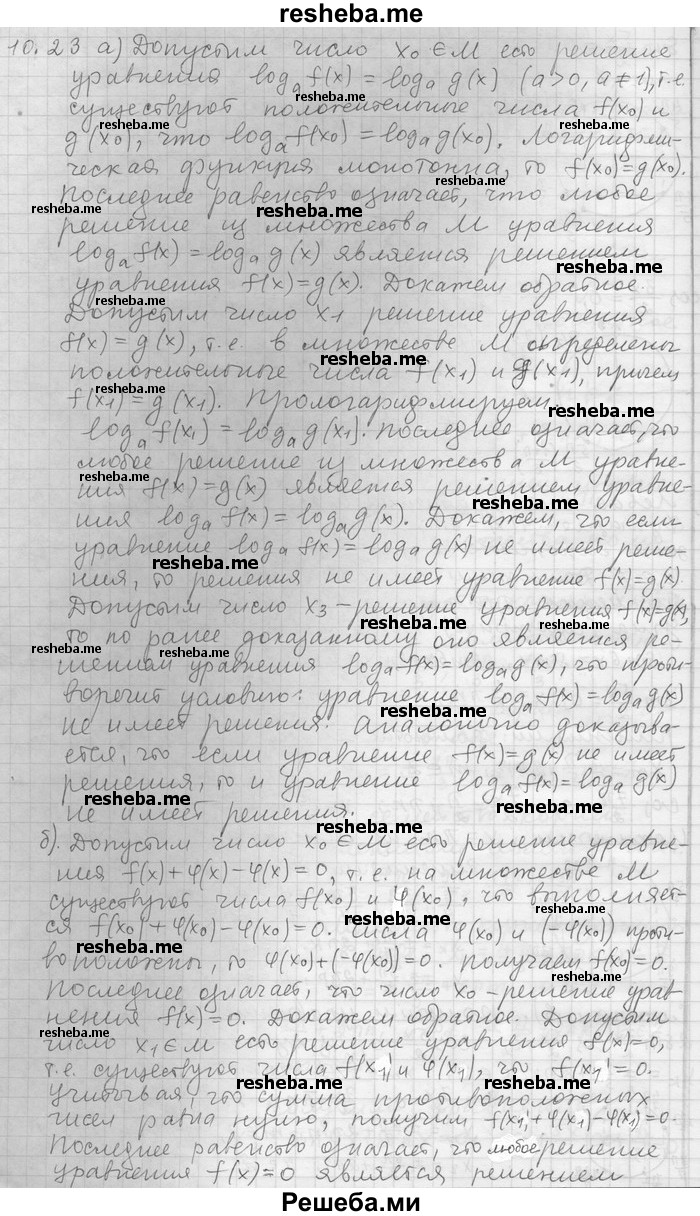 resheba.me
10.23 а) Допустим число x₀ ∈ M есть решение
уравнения logₐ f(x) = logₐ g(x) (a>0, a≠1), т.е.
существуют положительные числа f(x₀) и
g(x₀), что logₐ f(x₀) = logₐ g(x₀). Логарифми-
ческая функция монотонна, то f(x₀)=g(x₀).
Последнее равенство означает, что любое
решение из множества M уравнения
logₐ f(x) = logₐ g(x) является решением
уравнения f(x)=g(x). Докажем обратное.
Допустим число x₁ решение уравнения
f(x) = g(x), т.е. в множестве M определены
положительные числа f(x₁) и g(x₁), причем
f(x₁) = g(x₁). Прологарифмируем.
logₐ f(x₁) = logₐ g(x₁). Последнее означает, что
любое решение из множества M уравне-
ния f(x)=g(x) является решением уравне-
ния logₐ f(x) = logₐ g(x). Докажем, что если
уравнение logₐ f(x) = logₐ g(x) не имеет реше-
ния, то решения не имеет уравнение f(x)=g(x).
Допустим число x₃ – решение уравнения f(x)=g(x),
то по ранее доказанному оно является ре-
шением уравнения logₐ f(x)=logₐ g(x), что проти-
воречит условию: уравнение logₐ f(x) = logₐ g(x)
не имеет решения. Аналогично доказыва-
ется, что если уравнение f(x)=g(x) не имеет
решения, то и уравнение logₐ f(x)=logₐ g(x)
не имеет решения.
б). Допустим число x₀ ∈ M есть решение уравне-
ния f(x)+φ(x)-φ(x)=0, т.е. на множестве M
существуют числа f(x₀) и φ(x₀), что выполняет-
ся f(x₀)+φ(x₀)-φ(x₀)=0. Числа φ(x₀) и (-φ(x₀)) проти-
воположены, то φ(x₀)+(-φ(x₀))=0. Получаем f(x₀)=0.
Последнее означает, что число x₀ – решение урав-
нения f(x)=0. Докажем обратное. Допустим
число x₁ ∈ M есть решение уравнения f(x)=0,
т.е. существуют числа f(x₁) и φ(x₁), что f(x₁)=0.
Учитывая, что сумма противоположных
чисел равна нулю, получим f(x₁)+φ(x₁)-φ(x₁)=0.
Последнее равенство означает, что любое решение
уравнения f(x)=0 является решением
Решеба.ми